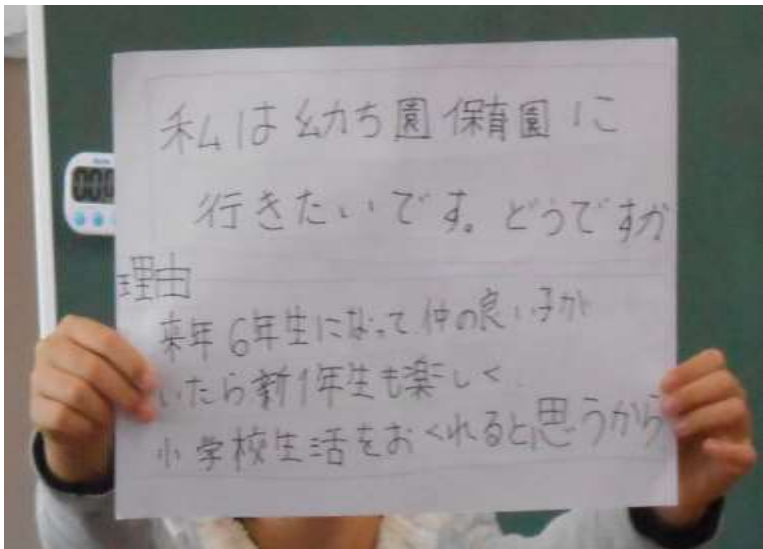 私は幼ち園保育園に
行きたいです。どうですか
理由
来年6年生になって仲の良い子が
いたら新1年生も楽しく
小学校生活をおくれると思うから